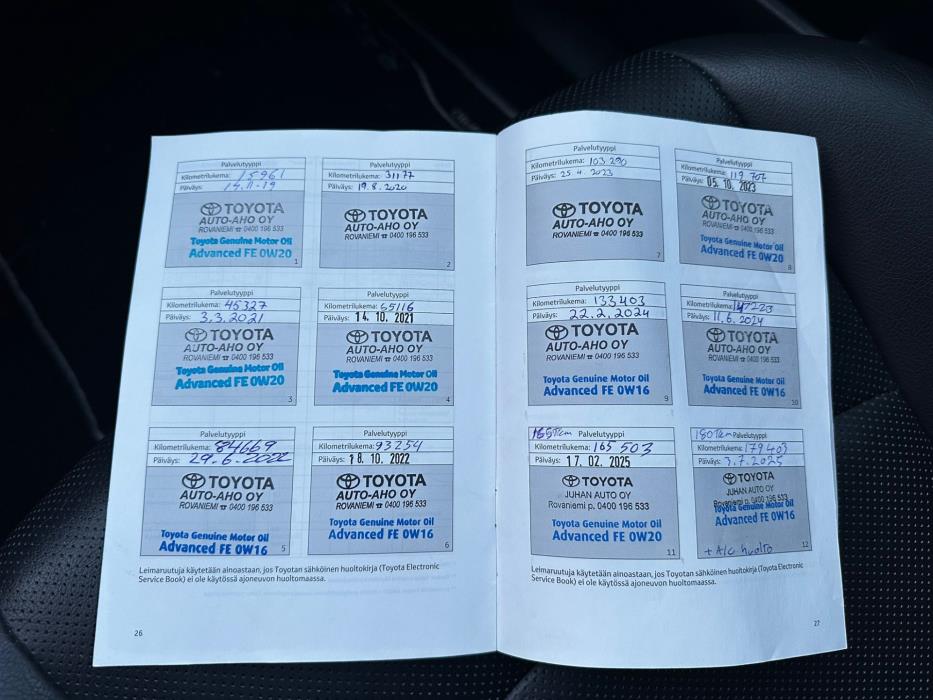 Palvelutyyppi
Kilometrilukema: 15961
Päiväys: 14.11-19
TOYOTA
AUTO-AHO OY
ROVANIEMI ☎ 0400 196 533
Toyota Genuine Motor Oil
Advanced FE 0W20
1
Palvelutyyppi
Kilometrilukema: 31177
Päiväys: 19.8.2020
TOYOTA
AUTO-AHO OY
ROVANIEMI ☎ 0400 196 533
2
Palvelutyyppi
Kilometrilukema: 45327
Päiväys: 3.3.2021
TOYOTA
AUTO-AHO OY
ROVANIEMI ☎ 0400 196 533
Toyota Genuine Motor Oil
Advanced FE 0W20
3
Palvelutyyppi
Kilometrilukema: 65116
Päiväys: 14. 10. 2021
TOYOTA
AUTO-AHO OY
ROVANIEMI ☎ 0400 196 533
Toyota Genuine Motor Oil
Advanced FE 0W20
4
Palvelutyyppi
Kilometrilukema: 84669
Päiväys: 29.6.2022
TOYOTA
AUTO-AHO OY
ROVANIEMI ☎ 0400 196 533
Toyota Genuine Motor Oil
Advanced FE 0W16
5
Palvelutyyppi
Kilometrilukema: 93254
Päiväys: 18. 10. 2022
TOYOTA
AUTO-AHO OY
ROVANIEMI ☎ 0400 196 533
Toyota Genuine Motor Oil
Advanced FE 0W16
6
Leimaruutuja käytetään ainoastaan, jos Toyotan sähköinen huoltokirja (Toyota Electronic
Service Book) ei ole käytössä ajoneuvon huoltomaassa.
26
Palvelutyyppi
Kilometrilukema: 103 290
Päiväys: 25.4.2023
TOYOTA
AUTO-AHO OY
ROVANIEMI ☎ 0400 196 533
7
Palvelutyyppi
Kilometrilukema: 119 707
Päiväys: 05. 10. 2023
TOYOTA
AUTO-AHO OY
ROVANIEMI ☎ 0400 196 533
Toyota Genuine Motor Oil
Advanced FE 0W20
8
Palvelutyyppi
Kilometrilukema: 133403
Päiväys: 22.2.2024
TOYOTA
AUTO-AHO OY
ROVANIEMI ☎ 0400 196 533
Toyota Genuine Motor Oil
Advanced FE 0W16
9
Palvelutyyppi
Kilometrilukema: 147223
Päiväys: 11.6.2024
TOYOTA
AUTO-AHO OY
ROVANIEMI ☎ 0400 196 533
Toyota Genuine Motor Oil
Advanced FE 0W16
10
165Tkm Palvelutyyppi
Kilometrilukema: 165 503
Päiväys: 17. 02. 2025
TOYOTA
JUHAN AUTO OY
Rovaniemi p. 0400 196 533
Toyota Genuine Motor Oil
Advanced FE 0W20
11
180Tkm Palvelutyyppi
Kilometrilukema: 179403
Päiväys: 3.7.2025
TOYOTA
JUHAN AUTO OY
Rovaniemi p. 0400 196 533
Toyota Genuine Motor Oil
Advanced FE 0W16
+ A/C huolto
12
Leimaruutuja käytetään ainoastaan, jos Toyotan sähköinen huoltokirja (Toyota Electronic
Service Book) ei ole käytössä ajoneuvon huoltomaassa.
27